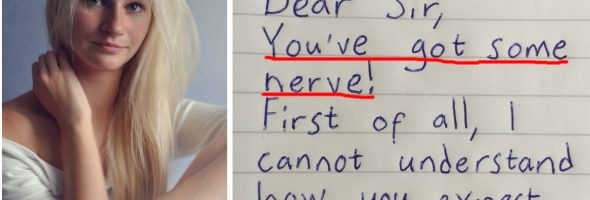 Dear Sir,
You've got some
nerve!
First of all, I
cannot understand
how you expect